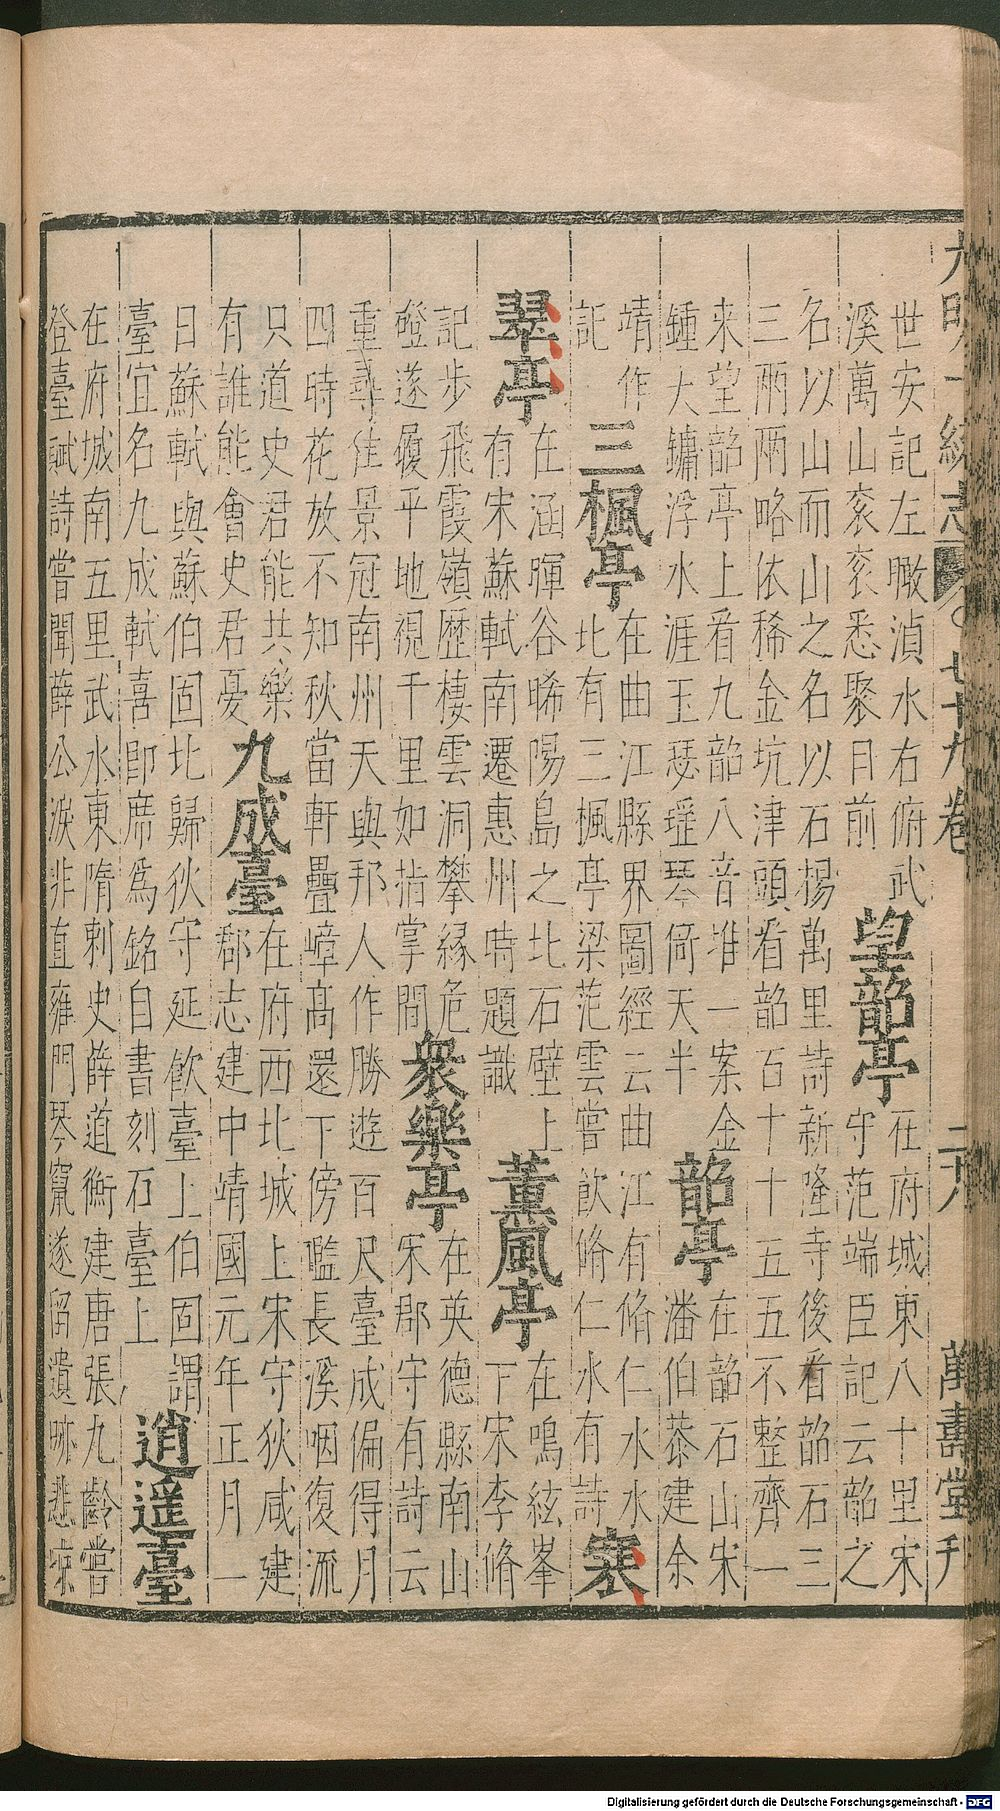 大明一統志 七十九卷 二十八 萬壽堂刊
世安記左瞰湞水右俯武
溪萬山衮衮悉聚目前
望韶亭
在府城東八十里宋
守范端臣記云韶之
名以山而山之名以石楊萬里詩新隆寺後看韶石三
三兩兩略依稀金坑津頭看韶百十十五五不整齊一
来望韶亭上看九韶八音堆一案金
鍾大鏞浮水涯玉瑟瑶琴倚天半
韶亭
在韶石山宋
潘伯恭建余
靖作
記
三楓亭
在曲江縣界圖經云曲江有脩仁水水
北有三楓亭梁范雲嘗飲脩仁水有詩
寒
翠亭
在涵暉谷晞陽島之北石壁上
有宋蘇軾南遷惠州時題識
薰風亭
在鳴絃峯
下宋李脩
記步飛霞嶺歷棲雲洞攀縁危
磴遂履平地視千里如指掌間
衆樂亭
在英德縣南山
宋郡守有詩云
重尋往景冠南州天與邦人作勝遊百尺臺成偏得月
四時花放不知秋當軒疊嶂高還下傍檻長溪咽復流
只道史君能共樂
有誰能會史君憂
九成臺
在府西北城上宋守狄咸建
郡志建中靖國元年正月一
日蘇軾與蘇伯固北歸狄守延飲臺上伯固謂
臺宜名九成軾喜即席爲銘自書刻石臺上
逍遥臺
在府城南五里武水東隋刺史薛道衡建唐張九齡嘗
登臺賦詩嘗聞薛公淚非直雍門琴竄遂留遺跡悲凉
Digitalisierung gefördert durch die Deutsche Forschungsgemeinschaft - DFG